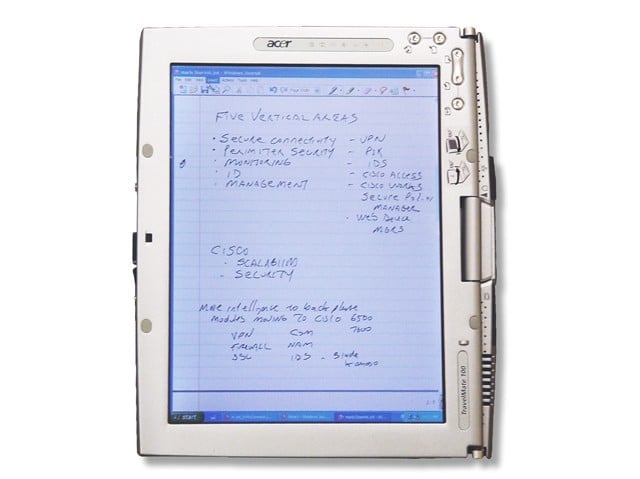 acer
Windows Journal
File Edit View Insert Actions Tools Help
Page Width
FIVE VERTICAL AREAS
• SECURE CONNECTIVITY - VPN
• PERIMITER SECURITY - PIX
• MONITORING - IDS
• ID - CISCO ACCESS
• MANAGEMENT - CISCO WORKS
SECURE
MANAGER
• WEB DEVICE
MGRS
CISCO
• SCALABILITY
- SECURITY
MORE intelligence to backplane
MODULES MOVING TO CISCO 6500
7600
VPN CSM
FIREWALL NAM
SSL IDS - Blade
start
TravelMate 100